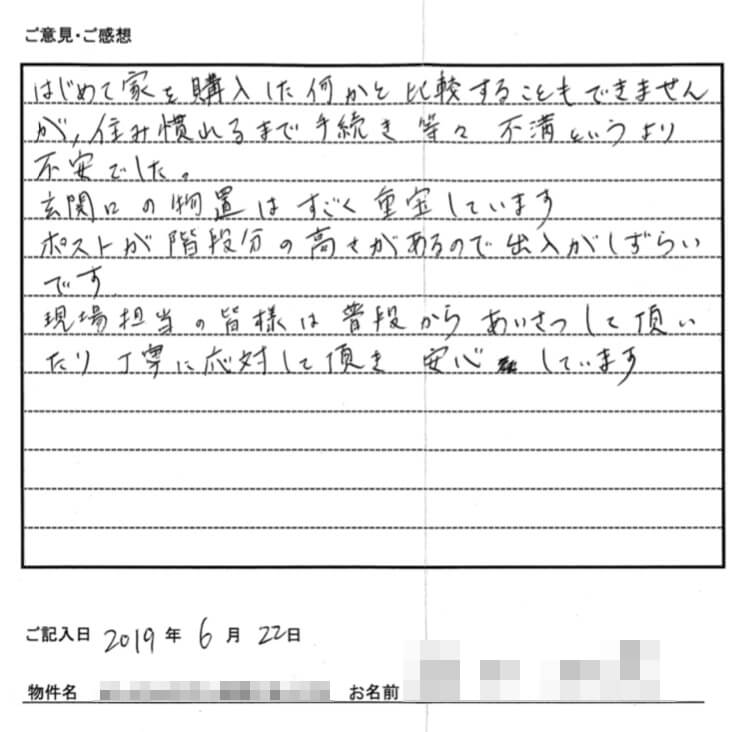 ご意見・ご感想
はじめて家を購入した何かと比較することもできません
が、住み慣れるまで手続き等々 不満というより
不安でした。
玄関口の物置はすごく重宝しています
ポストが階段分の高さがあるので出入がしずらい
です
現場担当の皆様は普段からあいさつして頂い
たり丁寧に応対して頂き 安心 しています
ご記入日 2019年 6月 22日
物件名 お名前